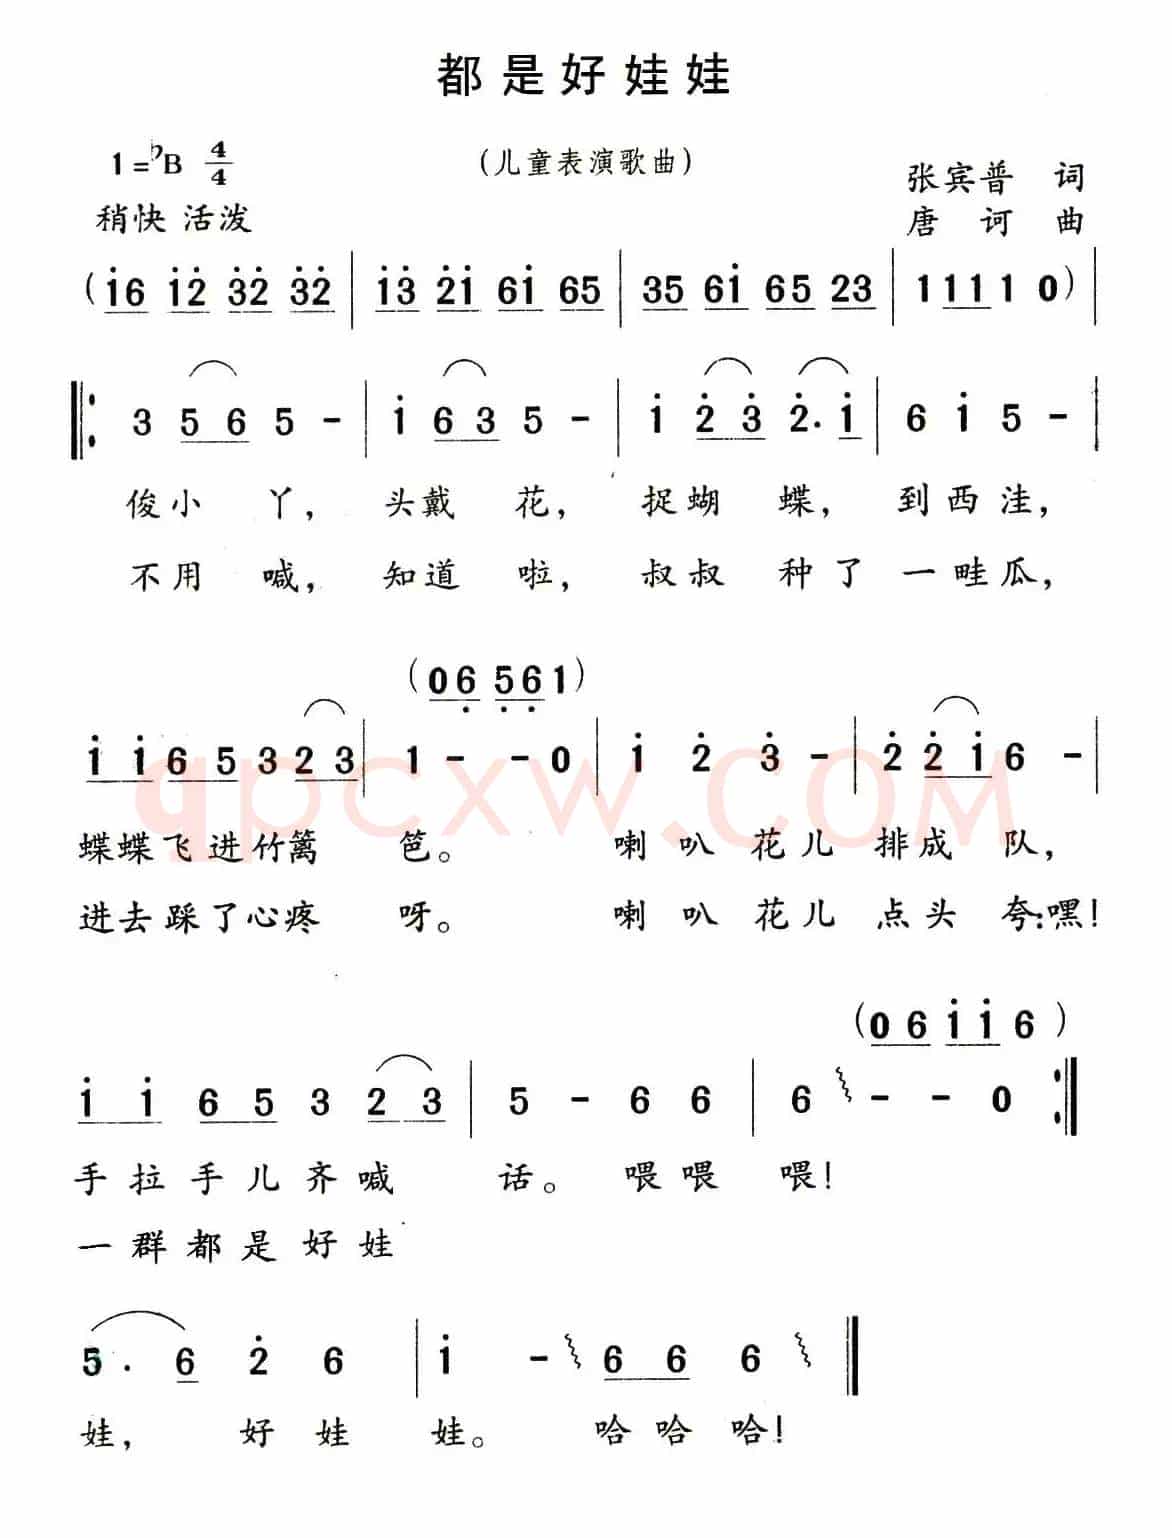 都是好娃娃
1=♭B 4/4
(儿童表演歌曲)
张宾普 词
稍快 活泼
唐 诃 曲
(i6 i2̇ 3̇2̇ 3̇2̇ | i3̇ 2̇i 6i 65 | 35 6i 65 23 | 1 11 1 0) |
‖: 3 56 5 - | i 63 5 - | i 2̇3̇ 2̇.i | 6 i 5 - |
俊小 丫, 头戴 花, 捉蝴 蝶, 到西洼,
不用 喊, 知道 啦, 叔叔 种了 一畦瓜,
(06̣ 5̣6̣ 1)
i i 6 5 3 2 3 | 1 - - 0 | i 2̇ 3̇ - | 2̇ 2̇ i 6 - |
蝶蝶飞进竹篱 笆。 喇叭花儿排成 队,
进去踩了心疼 呀。 喇叭花儿点头 夸:嘿!
(0 6 i i 6)
i i 6 5 3 2 3 | 5 - 6 6 | 6 - - 0 :‖
手拉手儿齐喊 话。喂喂 喂!
一群都是好娃
5. 6 2̇ 6 | i - 6 6 6 ‖
娃, 好娃 娃。 哈哈哈!
qpcxw.COM